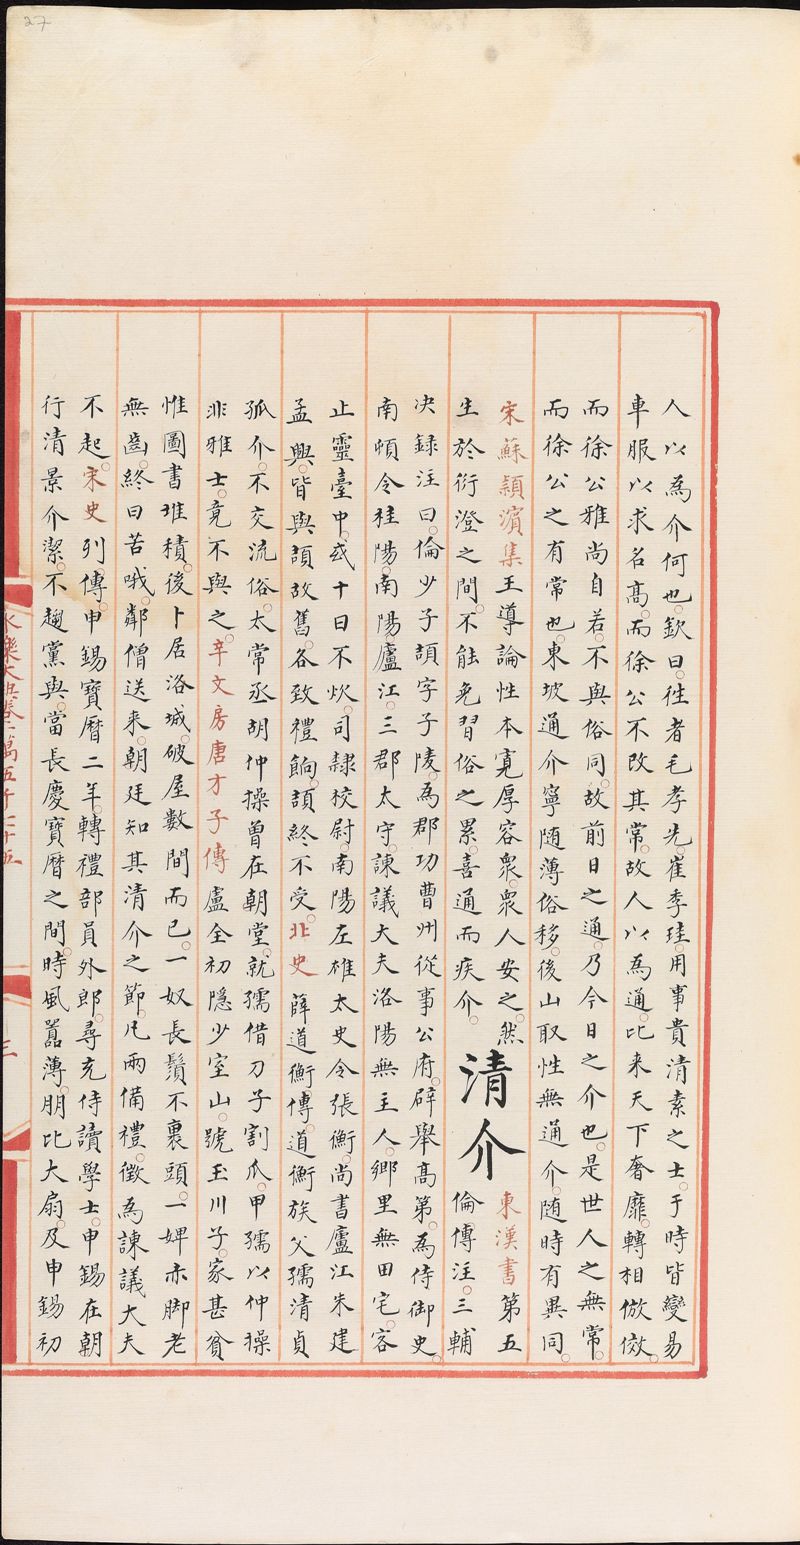 人以為介何也。欽曰。往者毛孝先。崔季珪。用事貴清素之士。于時皆變易
車服以求名高。而徐公不改其常。故人以為通。比来天下奢靡。轉相倣傚。
而徐公雅尚自若。不與俗同。故前日之通。乃今日之介也。是世人之無常。
而徐公之有常也。東坡通介寧随薄俗移。後山取性無通介。随時有異同。
宋蘇潁濱集王導論性本寛厚容衆。衆人安之。然
生於衍澄之間。不能免習俗之累。喜通而疾介。
清介
東漢書第五
倫傳注。三輔
决録注曰。倫少子頡字子陵。為郡功曹州從事公府。辟舉高第。為侍御史。
南頓令桂陽。南陽廬江。三郡太守。諫議大夫洛陽無主人。鄉里無田宅。客
止靈臺中。或十日不炊。司隸校尉。南陽左雄太史令張衡。尚書廬江朱建
孟興。皆與頡故舊。各致禮餉。頡終不受。北史薛道衡傳。道衡族父孺清貞
孤介。不交流俗。太常丞胡仲操曽在朝堂。就孺借刀子割瓜。甲孺以仲操
非雅士。竟不與之。辛文房唐才子傳盧仝初隱少室山。號玉川子。家甚貧
惟圖書堆積。後卜居洛城。破屋數間而已。一奴長鬚不裹頭。一婢赤脚老
無齒。終日苦哦。鄰僧送来。朝廷知其清介之節。凡兩備禮。徵為諫議大夫
不起。宋史列傳。申錫寶曆二年。轉禮部員外郎。尋充侍讀學士。申錫在朝
行清景介潔。不趨黨與。當長慶寶曆之間。時風囂薄。朋比大扇。及申錫初
永樂大典卷一萬五千七十五
三
27